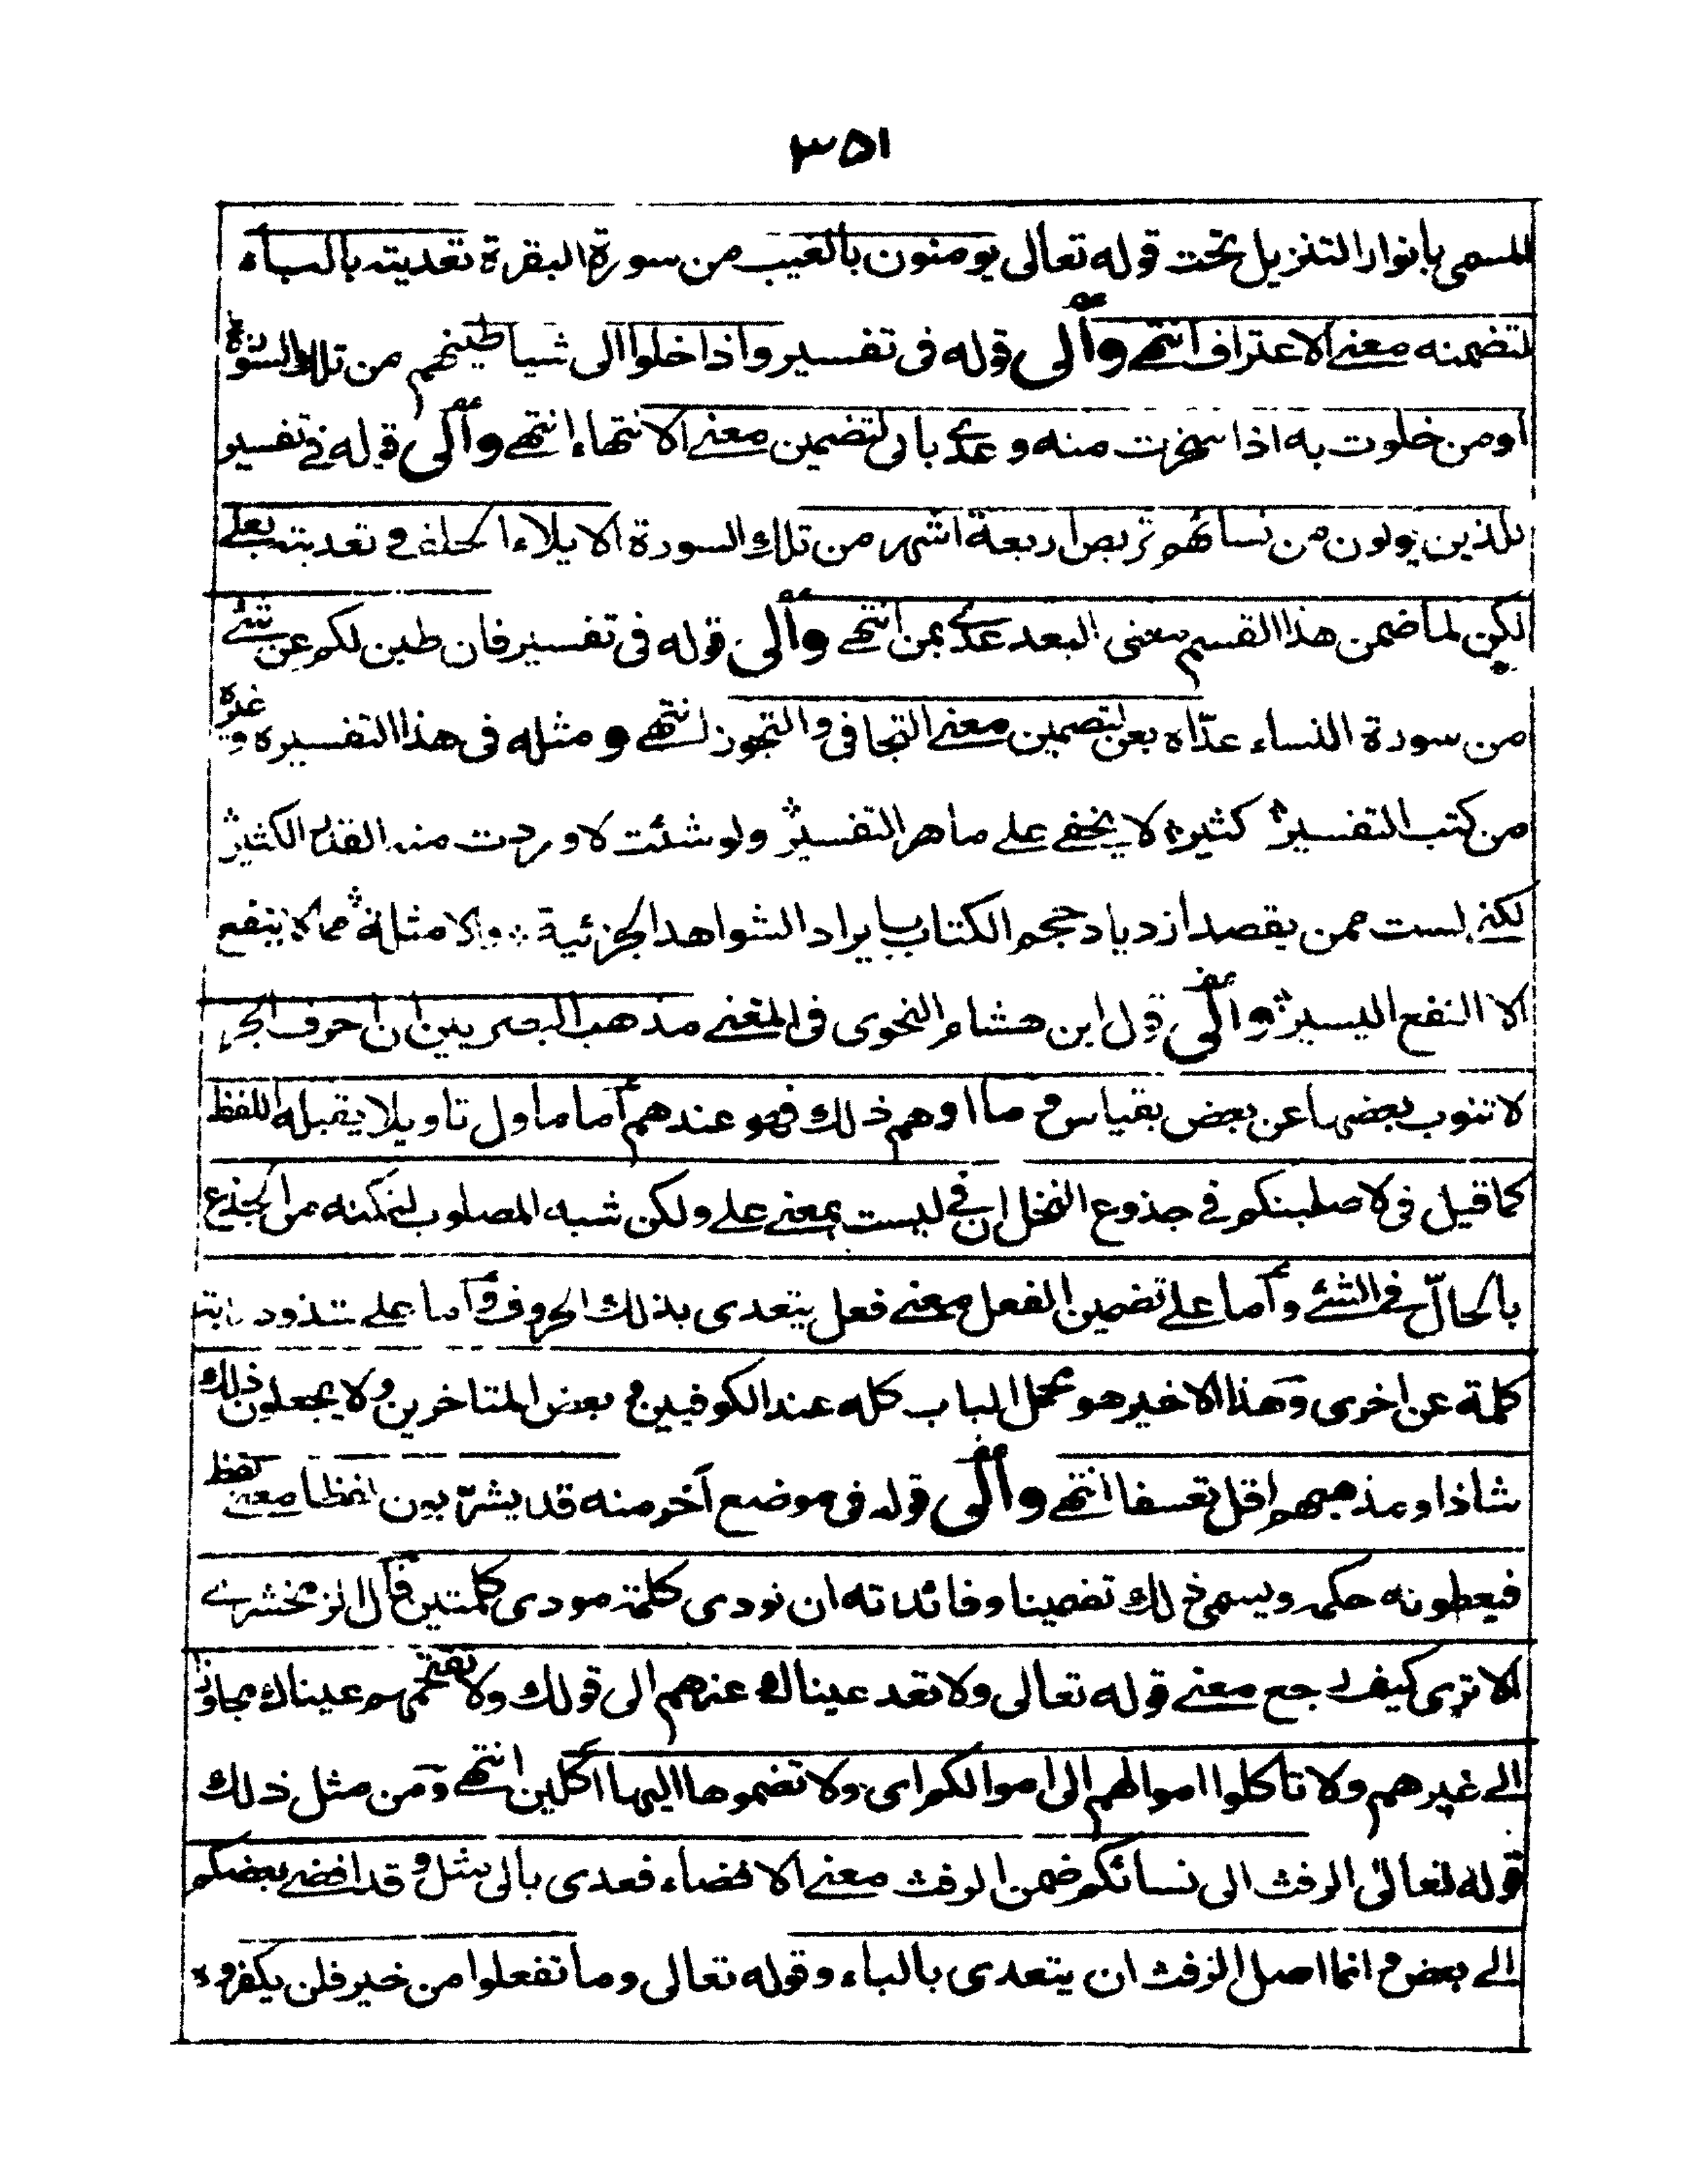 ٣٥١
المسمى بانوار التنزيل تحت قوله تعالى يومنون بالغيب من سورة البقرة تعديته بالباء
لتضمنه معنے الاعتراف انتهے والى قوله فى تفسير واذا خلوا الى شياطينهم من تلك السورة
اومن خلوت به اذا سخرت منه وعدے بالى لتضمين معنے الانتهاء انتهے والى قوله فے تفسير
للذين يولون من نسائهم تربص اربعة اشهر من تلك السورة الايلاء الحلف وتعديته بعلے
لكن لما ضمن هذا القسم معنى البعد عدے بمن انتهے والى قوله فى تفسير فان طبن لكم عن شئے
من سورة النساء عدّاه بعن لتضمين معنے التجافى والتجوز انتهے ومثله فى هذا التفسير وغيره
من كتب التفسير كثيرة لا يخفے علے ماهر التفسير ولو شئت لاوردت منه القدر الكثير
لكنے لست ممن يقصد ازدياد حجم الكتاب بايراد الشواهد الجزئية والامثلة مما لا ينفع
الا النفع اليسير والى قول ابن هشام النحوى فى المغنے مذهب البصريين ان احرف الجر
لا تنوب بعضها عن بعض بقياس وما اوهم ذلك فهو عندهم اما ماول تاويلا يقبله اللفظ
كما قيل فى لاصلبنكم فے جذوع النخل ان فے ليست بمعنے علے ولكن شبه المصلوب لتمكنه من الجذع
بالحالّ فے الشئے واما علے تضمين الفعل معنے فعل يتعدى بذلك الحروف واما علے شذوذ انابته
كلمة عن اخرى وهذا الاخير هو محمل الباب كله عند الكوفيين وبعض المتاخرين ولا يجعلون ذلك
شاذا ومذهبهم اقل تعسفا انتهے والى قوله فى موضع آخر منه قد يشربون لفظا معنے لفظ
فيعطونه حكمه ويسمى ذلك تضمينا وفائدته ان تودى كلمة مودى كلمتين قال الزمخشرے
الا ترى كيف رجع معنے قوله تعالى ولا تعد عيناك عنهم الى قولك ولا تقتحمهم عيناك مجاوزتين
الے غيرهم ولا تاكلوا اموالهم الى اموالكم اى ولا تضموها اليها اكلين انتهے ومن مثل ذلك
قوله تعالى الرفث الى نسائكم ضمن الرفث معنے الافضاء فعدى بالى مثل وقد افضے بعضكم
الے بعض وانما اصل الرفث ان يتعدى بالباء وقوله تعالى وما تفعلوا من خير فلن يكفروه